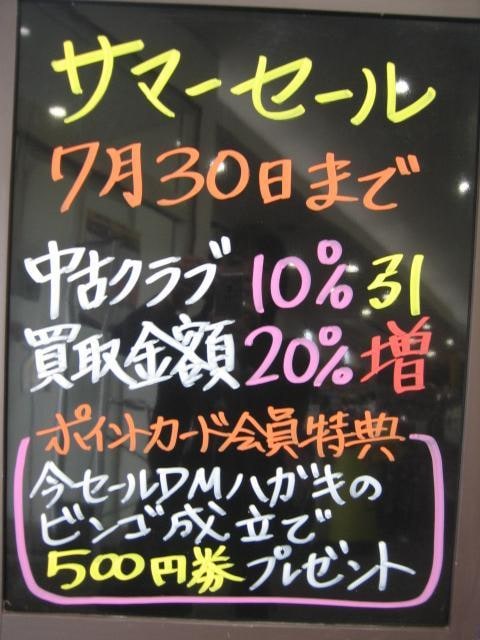 サマーセール
7月30日まで
中古クラブ10%引
買取金額20%増
ポイントカード会員特典
今セールDMハガキの
ビンゴ成立で
500円券プレゼント